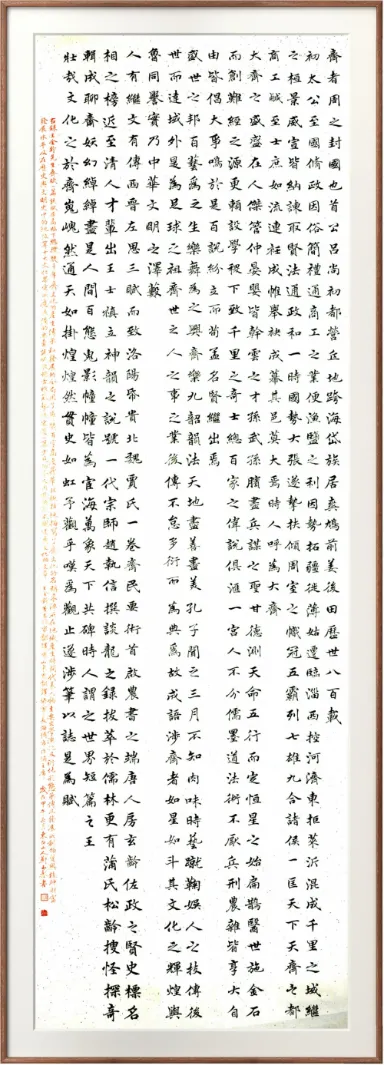 齊者周之封國也首公呂尚初都營丘地跨海岱族居爽鳩前姜後田歷世八百載
初太公至國修政因俗簡禮通商工之業便漁鹽之利因勢拓疆徙薄姑遷臨淄西控河濟東拒萊沂混成千里之域繼
之桓景威宣皆納諫取賢法通政和一時國勢大張遂擊扶傾周室之幟冠五霸列七雄九合諸侯一匡天下天齊之都
商工鹹至士庶如流連衽成帷舉袂成幕其邑莫大焉時人呼為大齊
大齊之盛盛在人傑管仲晏嬰皆幹雲之才孫武孫臏盡兵謀之聖甘德測天命五行而定恒星之始扁鵲醫世施金石
而創難經之源更賴設學稷下致千里之奇士總百家之偉說俱滙一宮人不分儒墨道法術不厭兵刑農雜皆享大自
由皆倡大爭鳴於是百說紛立而荀孟名聲繼出焉
盛世之邦百藝為之生樂舞為之興齊樂九韶韻法天地盡善盡美孔子聞之三月不知肉味時藝蹴鞠娛人之技傳後
世而遠域外是為足球之祖齊世之人之事之業後傳不怠多衍而為典為故成語涉齊者如星如斗其文化之輝煌與
魯同譽實乃中華文明之澤藪
人有繼文有傳西晉左思三賦而致洛陽帋貴北魏賈氏一卷齊民要術首啟農書之端唐人房玄齡佐政之賢史標名
相之榜近至清人才輩出王士禛立神韻之說號一代宗師趙執信撰談龍之錄拔萃於儒林更有蒲氏松齡搜怪探奇
輯成聊齋妖幻綽綽盡是人間百態鬼影幢幢皆為宦海萬象天下共碑時人謂之世界短篇之王
壯哉文化之於齊嵬嵬然通天如掛煌煌然貫史如虹予觀乎嘆為觀止遂涉筆以誌是為賦